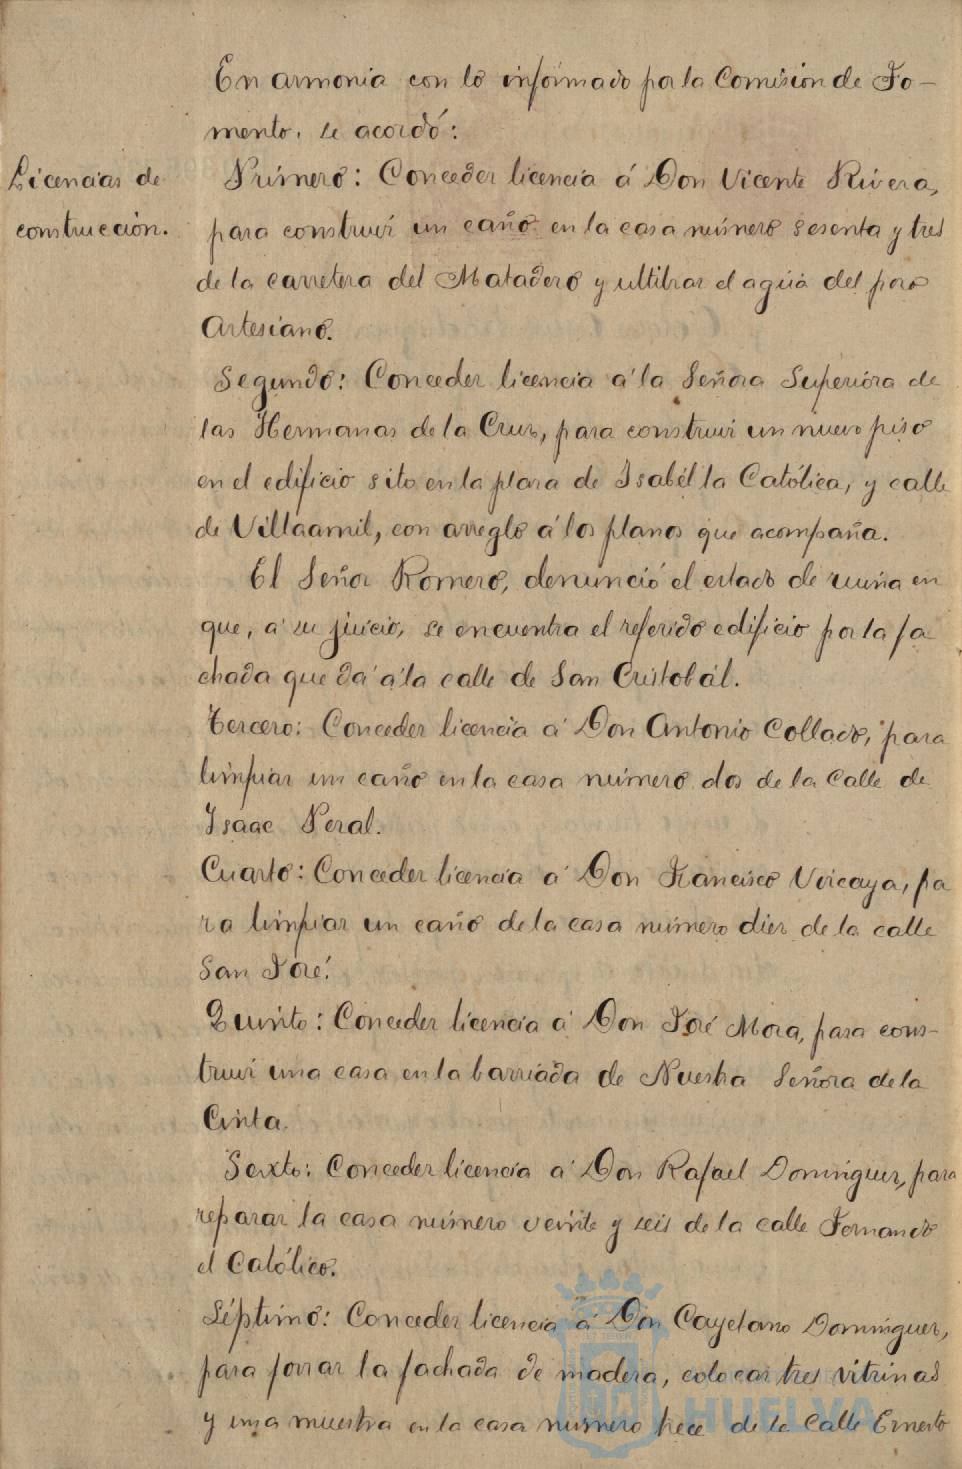 En armonia con lo informado por la Comision de Fo-
mento, se acordó:
Licencias de
construccion.
Primero: Conceder licencia á Don Vicente Rivera,
para construir un caño en la casa número sesenta y tres
de la carretera del Matadero y ultilizar el agua del pozo
Artesiano.
Segundo: Conceder licencia á la Señora Superiora de
las Hermanas de la Cruz, para construir un nuevo piso
en el edificio sito en la plaza de Isabél la Católica, y calle
de Villaamil, con arreglo á los planos que acompaña.
El Señor Romero, denunció el estado de ruina en
que, á su juicio, se encuentra el referido edificio por la fa
chada que dá á la calle de San Cristobál.
Tercero: Conceder licencia á Don Antonio Collado, para
limpiar un caño en la casa número dos de la Calle de
Isaac Peral.
Cuarto: Conceder licencia á Don Francisco Vizcaya, pa
ra limpiar un caño de la casa número diez de la calle
San José.
Quinto: Conceder licencia á Don José Mora, para cons-
truir una casa en la barriada de Nuestra Señora de la
Cinta.
Sexto: Conceder licencia á Don Rafael Dominguez, para
reparar la casa número veinte y seis de la calle Fernando
el Católico.
Séptimo: Conceder licencia á Don Cayetano Dominguez,
para forrar la fachada de madera, colocar tres vitrinas
y una muestra en la casa número trece de la Calle Ernesto
HUELVA